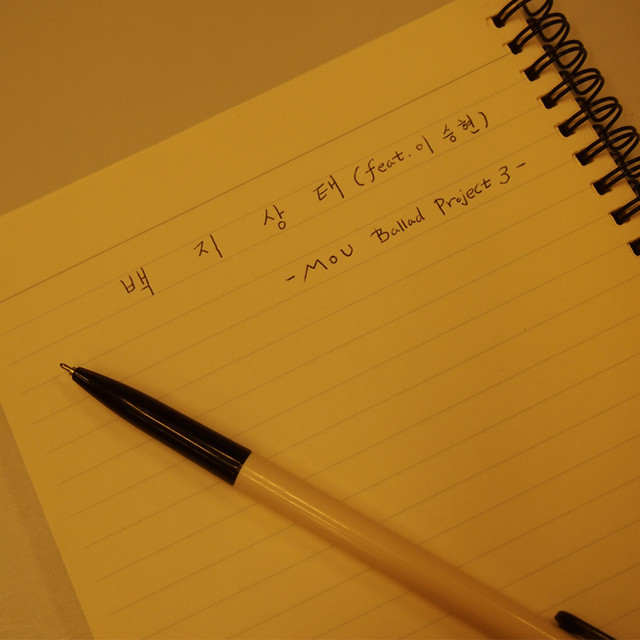 백 지 상 태 (feat. 이승현)
- MOU Ballad Project 3 -